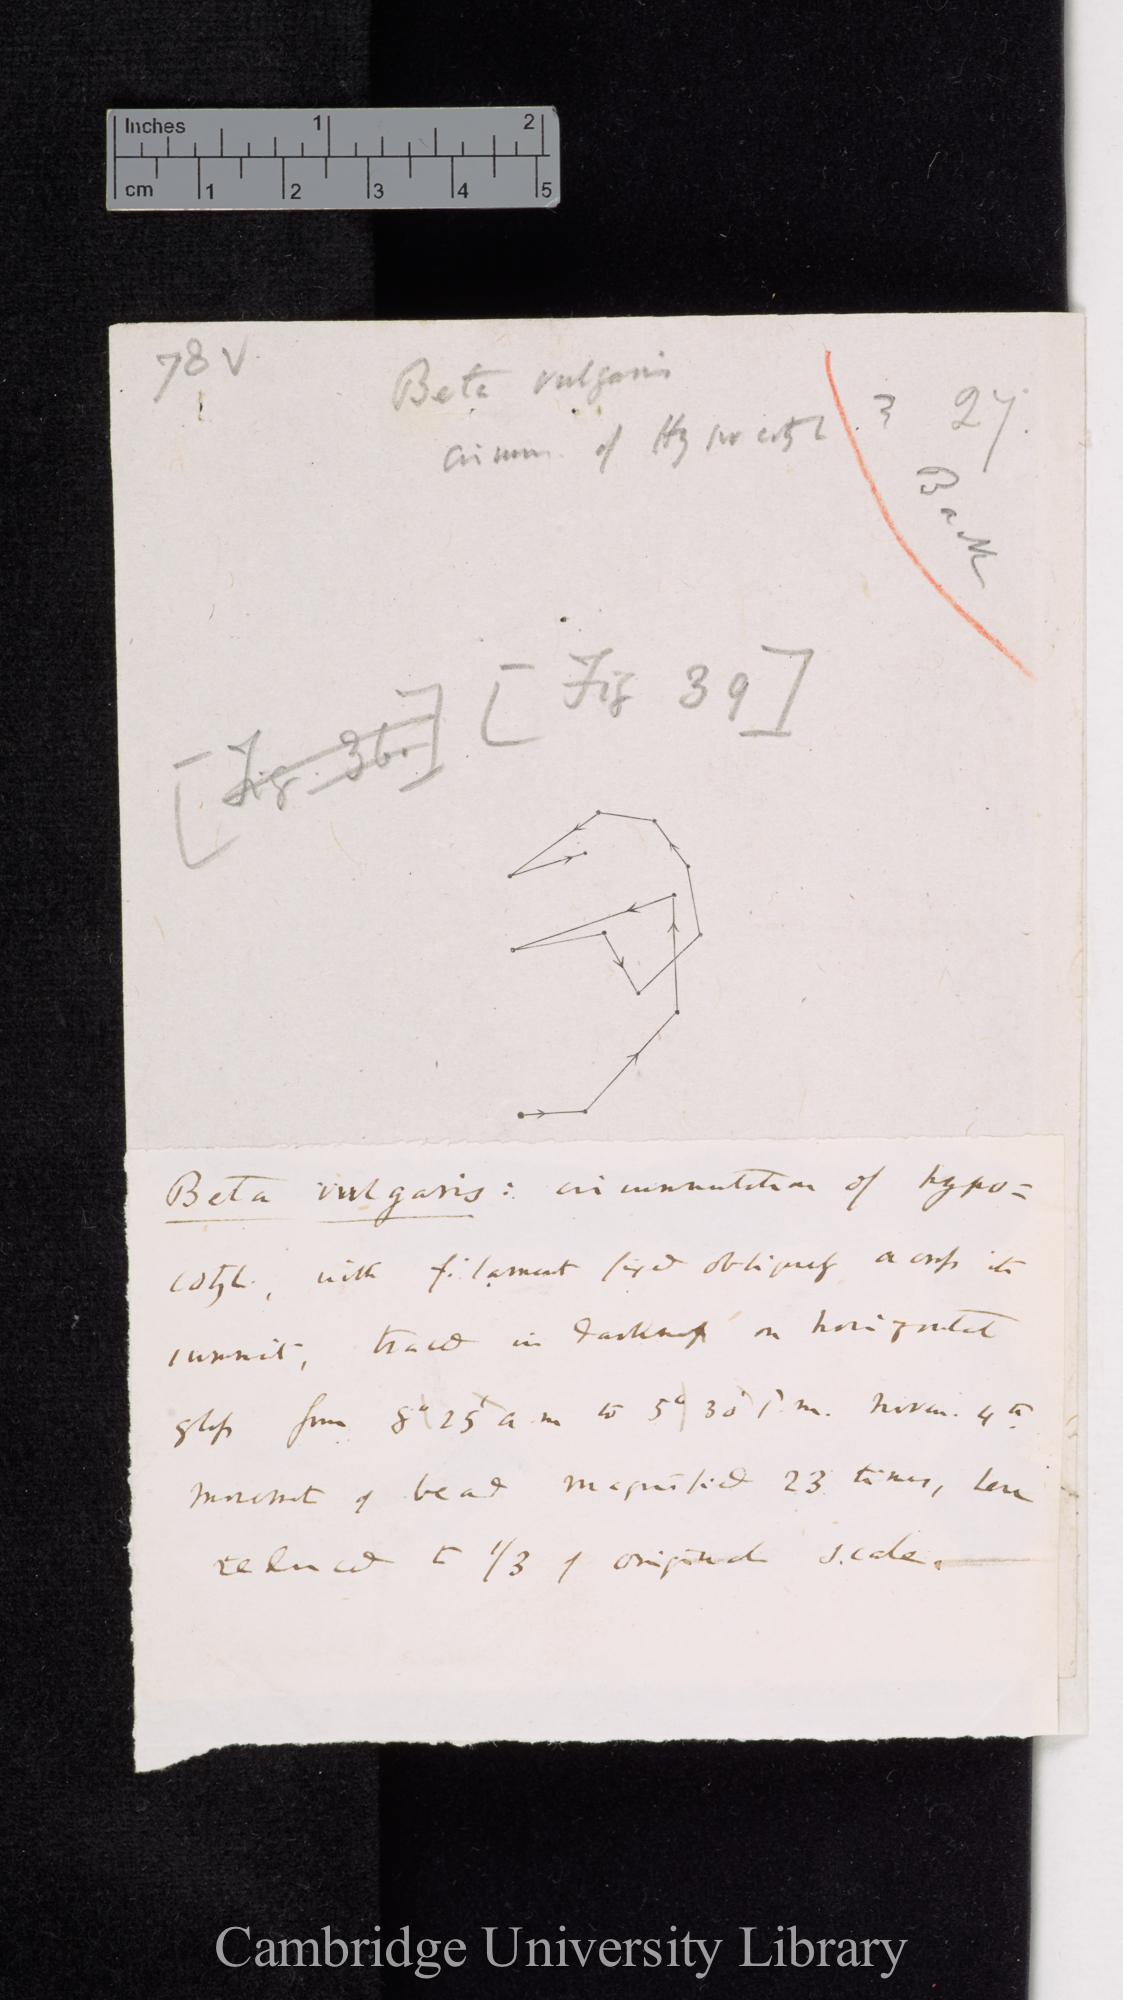 Inches 1 2
cm 1 2 3 4 5
78 V
Beta vulgaris
circumn. of Hypocotyl
3
27.
Back
[Fig 39]
[Fig. 36.]
Beta vulgaris: circumnutation of hypo=
cotyl, with filament fixed obliquely across its
summit, traced in darkness on horizontal
glass from 8° 25' a m to 5° 30' P. m. Novr. 4th
movement of bead magnified 23 times, here
reduced to 1/3 of original scale.
Cambridge University Library